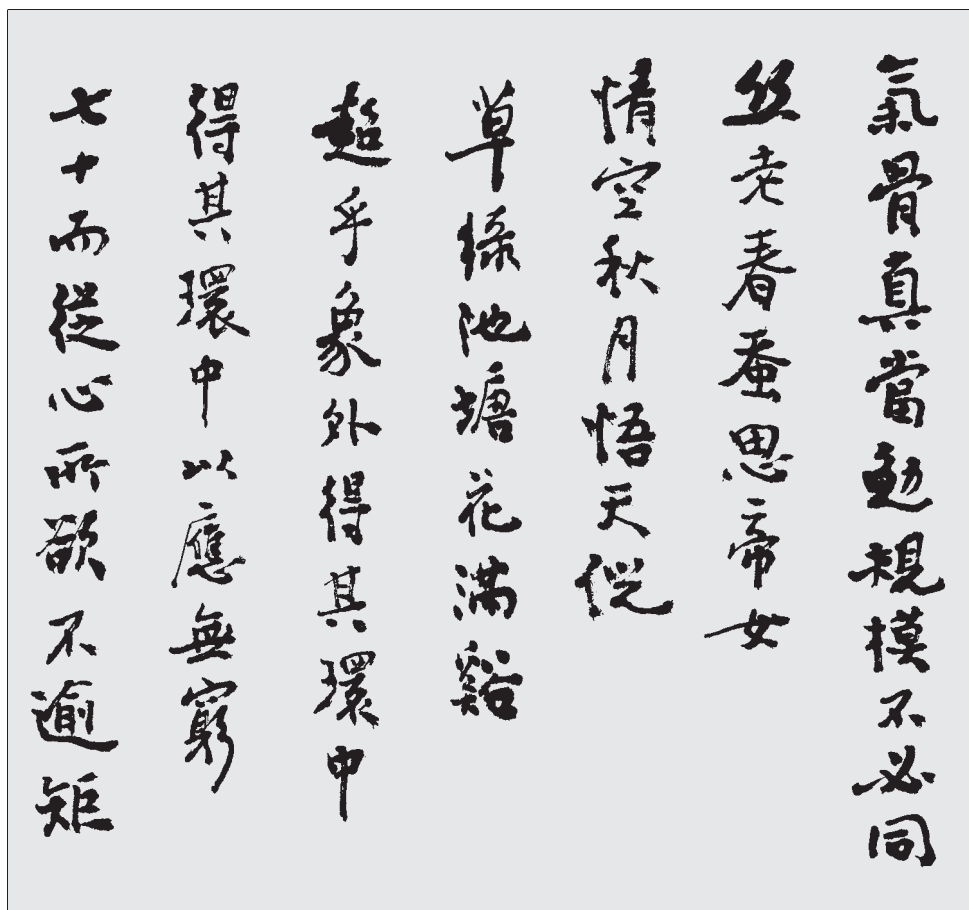 氣骨真當勉規模不必同
丝老春蚕思帝女
情空秋月悟天倪
草綠池塘花滿谿
超乎象外得其環中
得其環中以應無窮
七十而從心所欲不逾矩